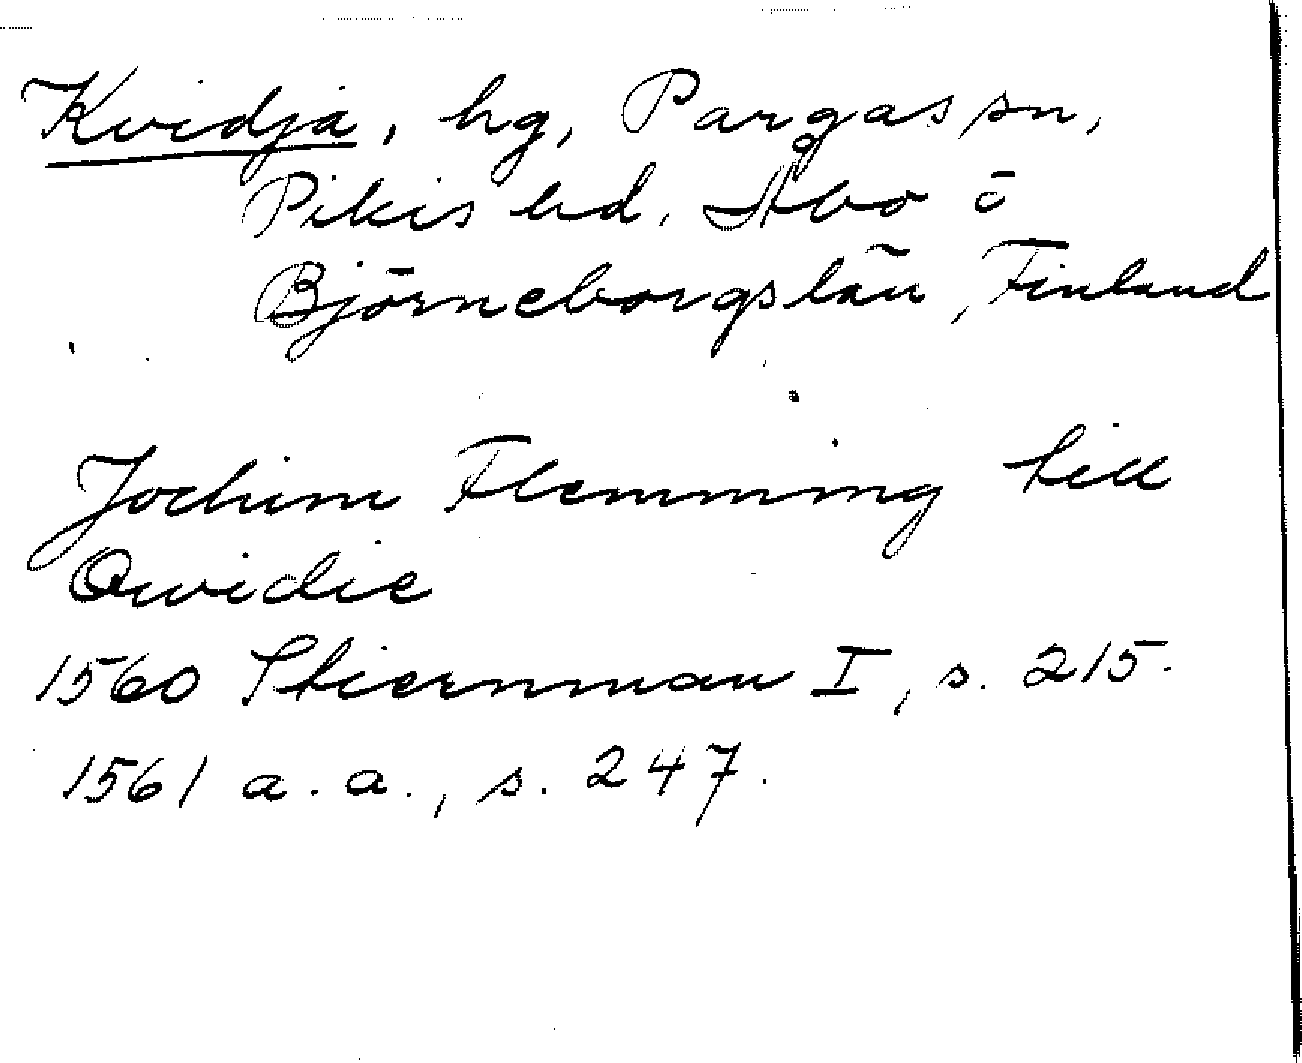 Kvidja, hg, Pargas sn,
Pikis hd. Åbo o
Björneborgslän, Finland
Jochim Flemming till
Qwidie
1560 Stiernman I, s. 215.
1561 a.a., s. 247.